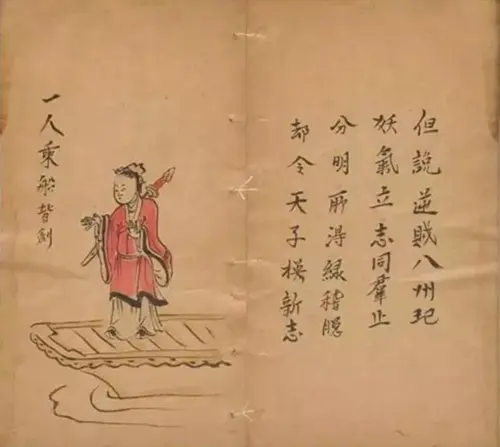 但說逆賊八州玘
妖氣立志同羣止
分明所得綠稽腮
却令天子換新志
一人乘船背劍